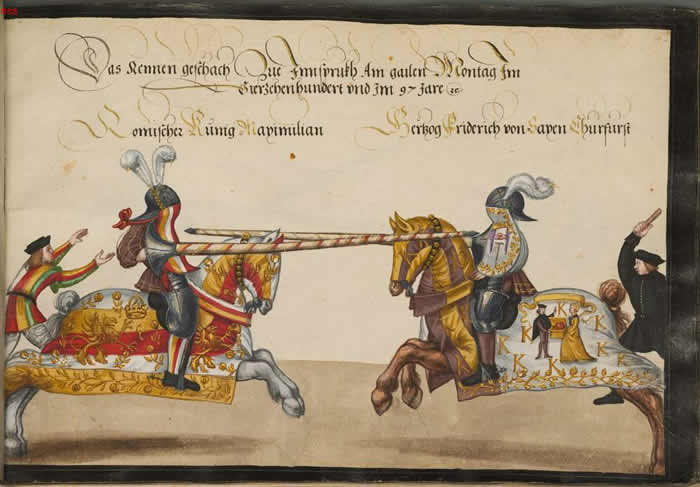 Das Rennen geschach Zue Innsprukh Am gailen Montag Im
Vierzehenhundert vnd Im 97 Jare
Romischer Kunig Maximilian
Hertzog Friderich von Saxen Churfürst
K K
K K
K K K